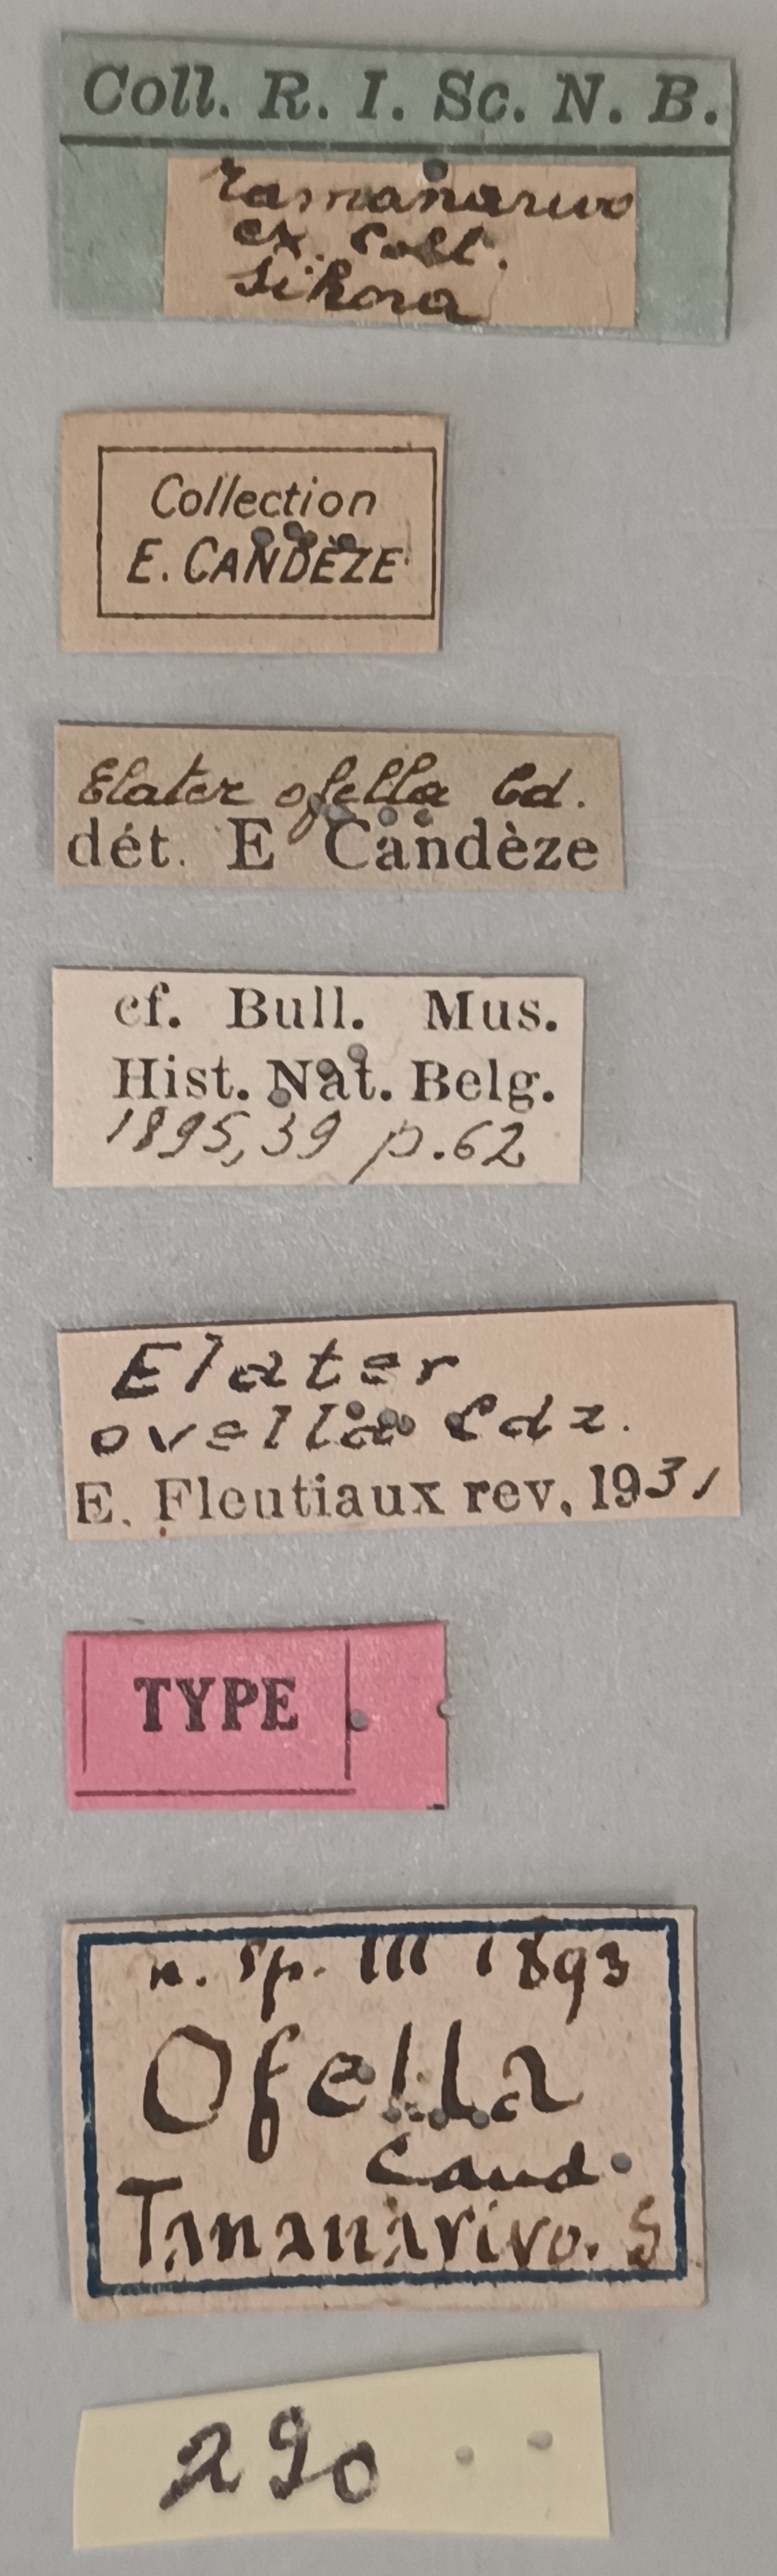 Coll. R. I. Sc. N. B.
Tananarivo
ex. Coll.
Sikora
Collection
E. CANDÈZE
Elater ofella Cd.
dét. E Candèze
cf. Bull. Mus.
Hist. Nat. Belg.
1895, 39 p. 62
Elater
ovella Cdz.
E. Fleutiaux rev, 1931
TYPE
n. sp. III 1893
Ofella
Cand.
Tananarivo. S
290